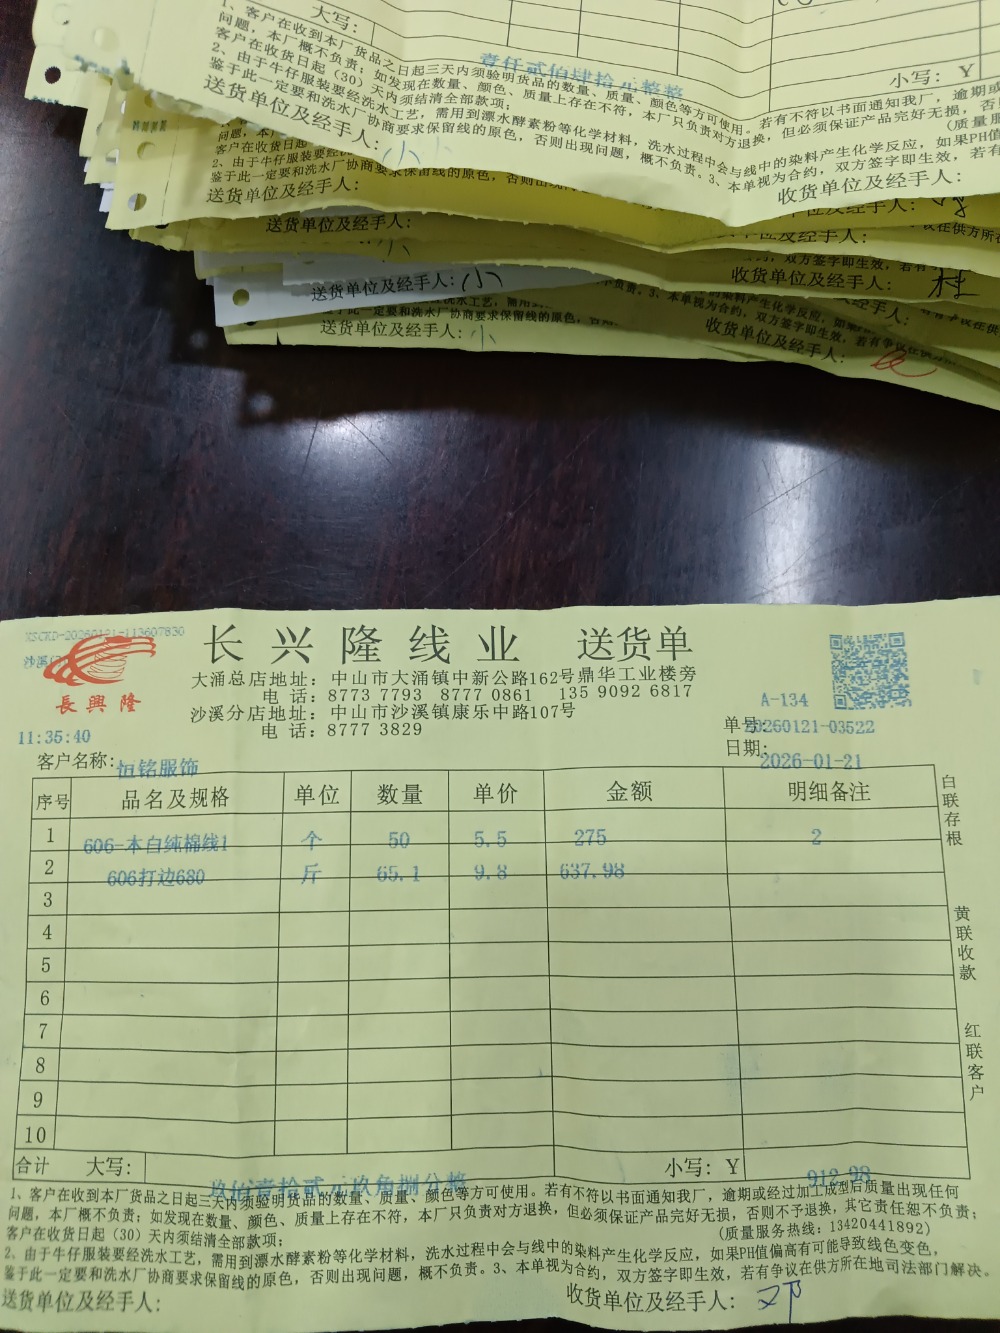 大写:
壹仟贰佰肆拾元整整
小写: Y
1、客户在收到本厂货品之日起三天内须验明货品的数量、质量、颜色等方可使用。若有不符以书面通知我厂，逾期或
问题，本厂概不负责；如发现在数量、颜色、质量上存在不符，本厂只负责对方退换，但必须保证产品完好无损，否
客户在收货日起（30）天内须结清全部款项；
(质量服
2、由于牛仔服装要经洗水工艺，需用到漂水酵素粉等化学材料，洗水过程中会与线中的染料产生化学反应，如果PH值
鉴于此一定要和洗水厂协商要求保留线的原色，否则出现问题，概不负责。3、本单视为合约，双方签字即生效，若有
送货单位及经手人: 小
收货单位及经手人:
问题，本
客户在收货日起
2、由于牛仔服装要经
鉴于此一定要和洗水厂协商要求保留线的原色，否则出现
送货单位及经手人:
送货单位及经手人:
收货单位及经手人:
送货单位及经手人: 小
收货单位及经手人: 桂
鉴于此一定要和洗水厂协商要求保留线的原色，否
送货单位及经手人: 小
收货单位及经手人:
XSCKD-20260121-113607830
長興隆
长兴隆线业 送货单
大涌总店地址: 中山市大涌镇中新公路162号鼎华工业楼旁
电 话: 8773 7793 8777 0861 135 9092 6817
沙溪分店地址: 中山市沙溪镇康乐中路107号
电 话: 8777 3829
A-134
单号: 20260121-03522
日期: 2026-01-21
11:35:40
客户名称: 恒铭服饰
序号 品名及规格 单位 数量 单价 金额 明细备注
1 606-本白纯棉线1 个 50 5.5 275 2
2 606打边680 斤 65.1 9.8 637.98
3
4
5
6
7
8
9
10
合计 大写: 玖佰壹拾贰元玖角捌分整 小写: Y 912.98
白联存根
黄联收款
红联客户
1、客户在收到本厂货品之日起三天内须验明货品的数量、质量、颜色等方可使用。若有不符以书面通知我厂，逾期或经过加工成型后质量出现任何
问题，本厂概不负责；如发现在数量、颜色、质量上存在不符，本厂只负责对方退换，但必须保证产品完好无损，否则不予退换，其它责任恕不负责；
客户在收货日起（30）天内须结清全部款项；
(质量服务热线: 13420441892)
2、由于牛仔服装要经洗水工艺，需用到漂水酵素粉等化学材料，洗水过程中会与线中的染料产生化学反应，如果PH值偏高有可能导致线色变色，
鉴于此一定要和洗水厂协商要求保留线的原色，否则出现问题，概不负责。3、本单视为合约，双方签字即生效，若有争议在供方所在地司法部门解决。
送货单位及经手人:
收货单位及经手人: 邓